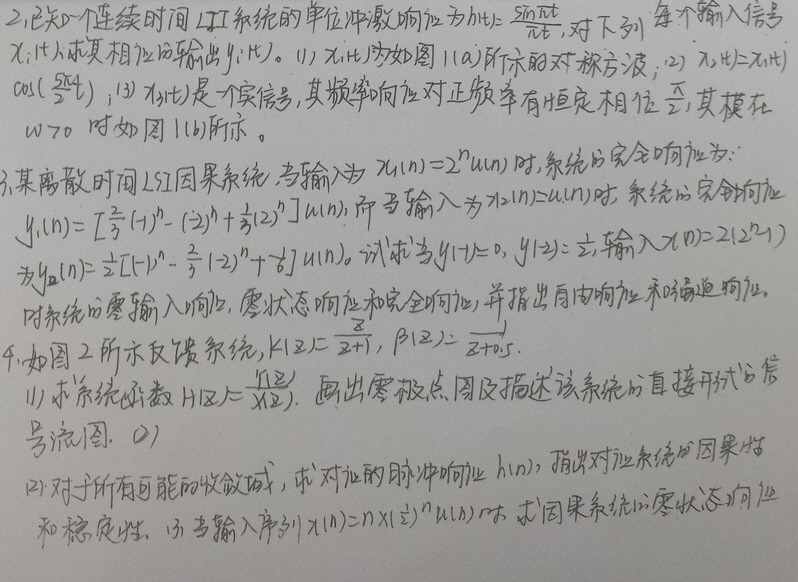 2,已知一个连续时间LTI系统的单位冲激响应为h(t)=sinπt/πt,对下列每个输入信号
xᵢ(t),求其相应的输出yᵢ(t)。(1) x₁(t)为如图1(a)所示的对称方波;(2) x₂(t)=x₁(t)
cos(5π/2 t);(3) x₃(t)是一个实信号,其频率响应对正频率有恒定相位π/2,其模在
ω>0 时如图1(b)所示。
3,某离散时间LSI因果系统,当输入为 x₁(n)=2ⁿu(n)时,系统的完全响应为:
y₁(n)=[2/3(-1)ⁿ-(-2)ⁿ+1/3(2)ⁿ]u(n),而当输入为x₂(n)=u(n)时,系统的完全响应
为y₂(n)=1/2[(-1)ⁿ-2/3(-2)ⁿ+1/6]u(n)。试求当y(-1)=0,y(-2)=1/2,输入x(n)=2(2ⁿ-1)
时系统的零输入响应,零状态响应和完全响应,并指出自由响应和强迫响应。
4,如图2所示反馈系统,K(z)=z/z+1,β(z)=1/z+0.5.
(1) 求系统函数H(z)=Y(z)/X(z). 画出零极点图及描述该系统的直接形式的信
号流图. (2)
(2) 对于所有可能的收敛域,求对应的脉冲响应h(n),指出对应系统的因果性
和稳定性. (3) 当输入序列x(n)=n×(1/2)ⁿu(n)时,求因果系统的零状态响应